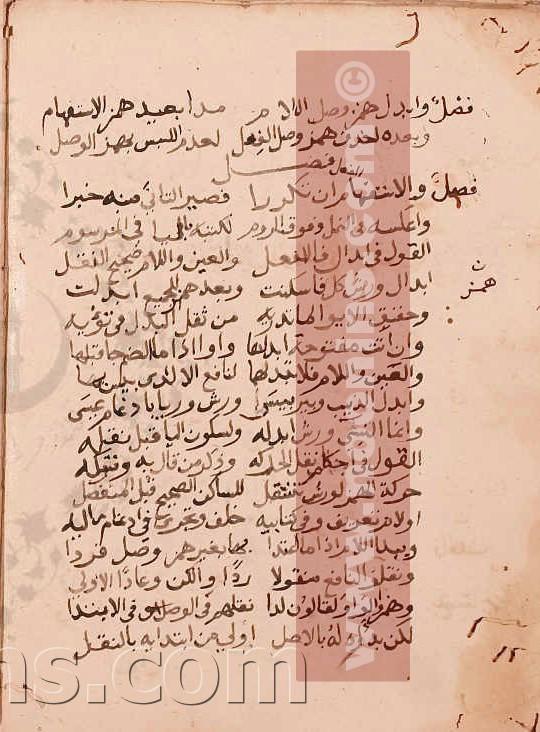 فصل وابدل همز وصل اللام مدا بعيد همز الاستفهام
وبعده احذف همز وصل الفعل لعدم اللبس بهمز الوصل
فصل
فصل والاستفهام ان تكررا فصير الثاني منه خبرا
واعكسه في النمل وفوق الروم لكتبه باليا في المرسوم
القول في ابدال فاء الفعل والعين واللام صحيح النقل
ابدل ورش كل فا سكنت وبعد همز للجميع ابدلت
همز
وحقق الايوا لما تدريه من ثقل البدل في تؤيه
وان اتت مفتوحة ابدلها واوا اذا ما الضم جا قبلها
والعين واللام فلا تبدلها لنافع الا لدى بيس بما
وابدل الذيب وبير بيس ورش ورييا بادغام عيسى
وانما النسي ورش ابدله ولسكون اليا قبل ثقله
القول في احكام نقل الحركه وذكر من قال به وتركه
حركة الهمز لورش تنتقل للساكن الصحيح قبل المنفصل
او لام تعريف وفي كتابيه خلف ويجري في ادغام ماليه
ويبدا اللام اذا ما اعتدا بها بغير همز وصل فردا
ونقلوا لنافع منقولا ردا والان وعادا الاولى
وهمزوا الواو لقالون لدا نقلهم في الوصل او في الابتدا
لكن بدءه له بالاصل اولى من ابتدايه بالنقل